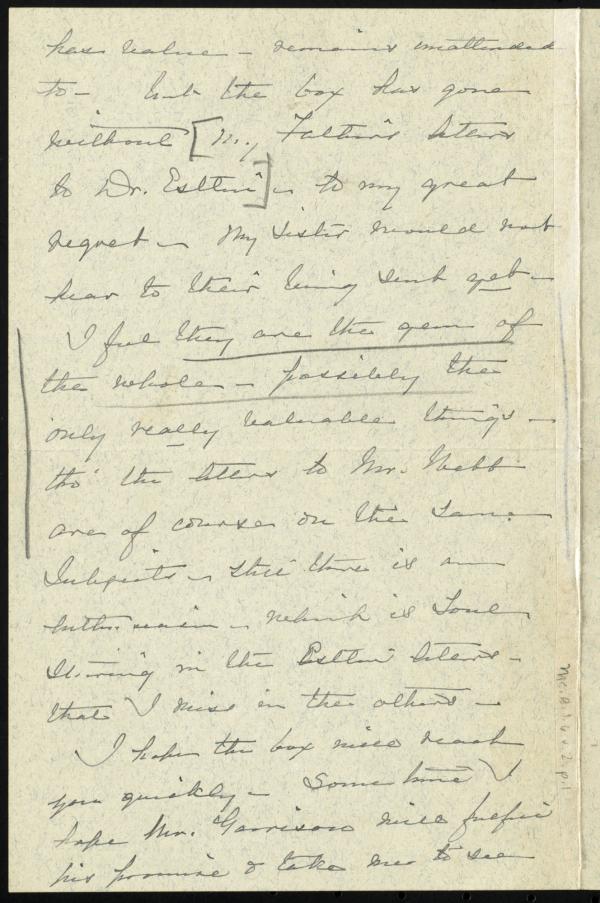 has value – remains unattended
to – but the box has gone
without [my Father's letters
to Dr. Estlin] – to my great
regret – My sister would not
hear to their being sent yet –
I feel they are the gem of
the whole – possibly the
only really valuable things –
tho' the letters to Mr. Webb
are of course on the same
Subjects – still there is an
enthusiasm – which is Soul
Stirring in the Estlin letters –
that I miss in the others –
I hope the box will reach
you quickly – Sometime I
hope Mr. Garrison will fulfil
his promise & take me to see
Ms. B. 1. 6 v. 2 p. 1